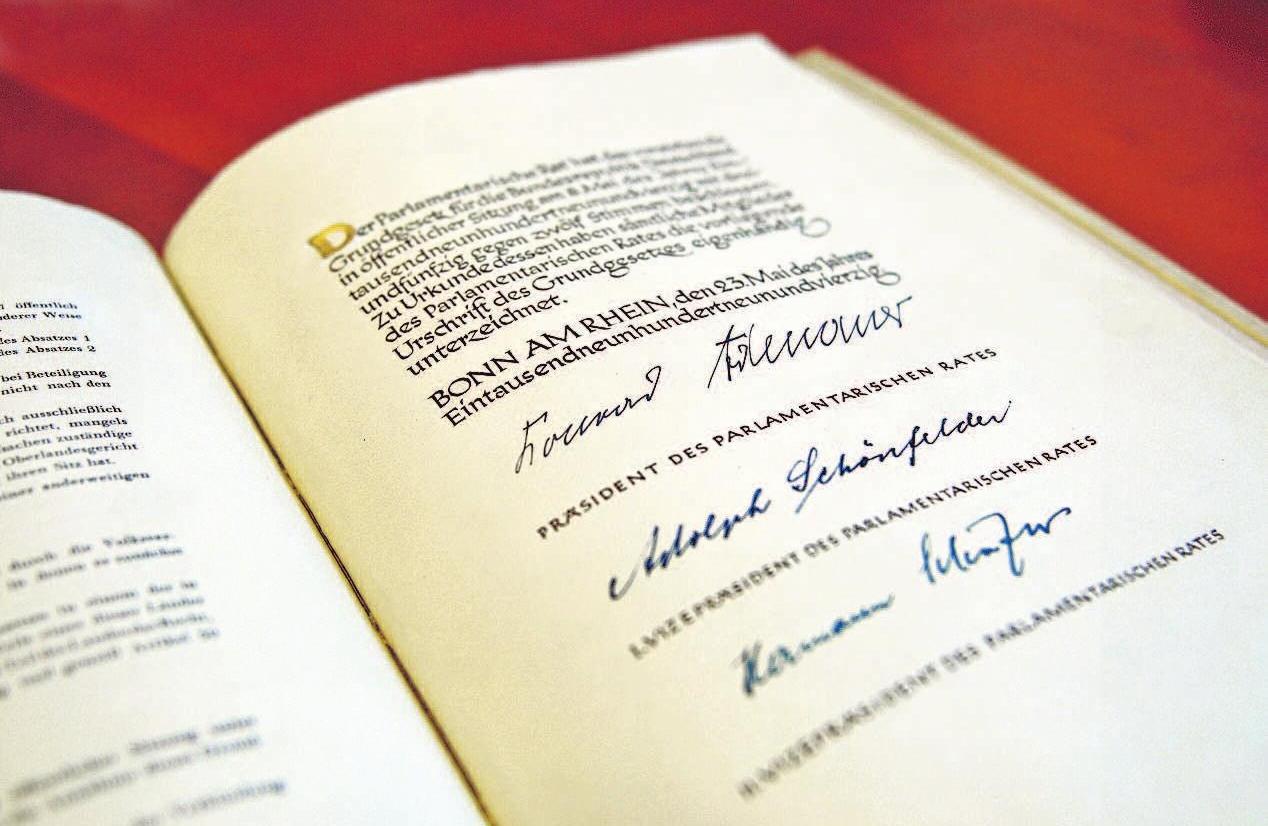 öffentlich
anderer Weise
des Absatzes 1
des Absatzes 2
bei Beteiligung
nicht nach den
ausschließlich
richtet, mangels
zuständige
Oberlandesgericht
ihren Sitz hat.
einer anderweitigen
durch die
Der Parlamentarische Rat hat das vorstehende
Grundgesetz für die Bundesrepublik Deutschland
in öffentlicher Sitzung am 8. Mai des Jahres Ein-
tausendneunhundertneunundvierzig mit drei-
undfünfzig gegen zwölf Stimmen beschlossen.
Zu Urkunde dessen haben sämtliche Mitglieder
des Parlamentarischen Rates die vorliegende
Urschrift des Grundgesetzes eigenhändig
unterzeichnet.
BONN AM RHEIN, den 23. Mai des Jahres
Eintausendneunhundertneunundvierzig
Konrad Adenauer
PRÆSIDENT DES PARLAMENTARISCHEN RATES
Adolph Schönfelder
I. VIZEPRÆSIDENT DES PARLAMENTARISCHEN RATES
Hermann Schäfer
II. VIZEPRÆSIDENT DES PARLAMENTARISCHEN RATES